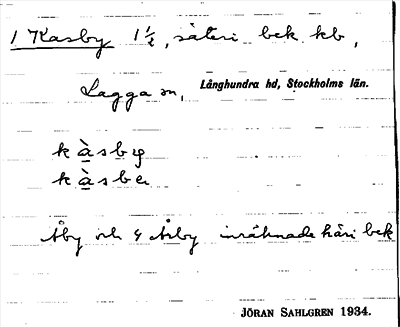 1 Kasby 1 1/2, säteri bek. kb,
Lagga sn, Långhundra hd, Stockholms län.
kàsby
kàsbe
Åby och 4 Åsby inräknade häri bek
JÖRAN SAHLGREN 1934.